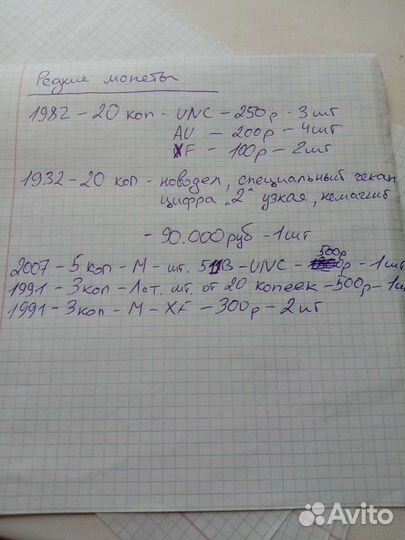 Редкие монеты
1982 - 20 коп - UNC - 250р - 3шт
AU - 200р - 4шт
XF - 100р - 2шт
1932 - 20 коп - новодел, специальный чекан
цифра "2" узкая, немагнит
- 90.000руб - 1шт
500р
2007 - 5 коп - М - шт. В - UNC - р - 1шт
1991 - 3коп - Лст. шт. от 20 копеек - 500р - 1шт
1991 - 3коп - М - XF - 300р - 2шт
Avito